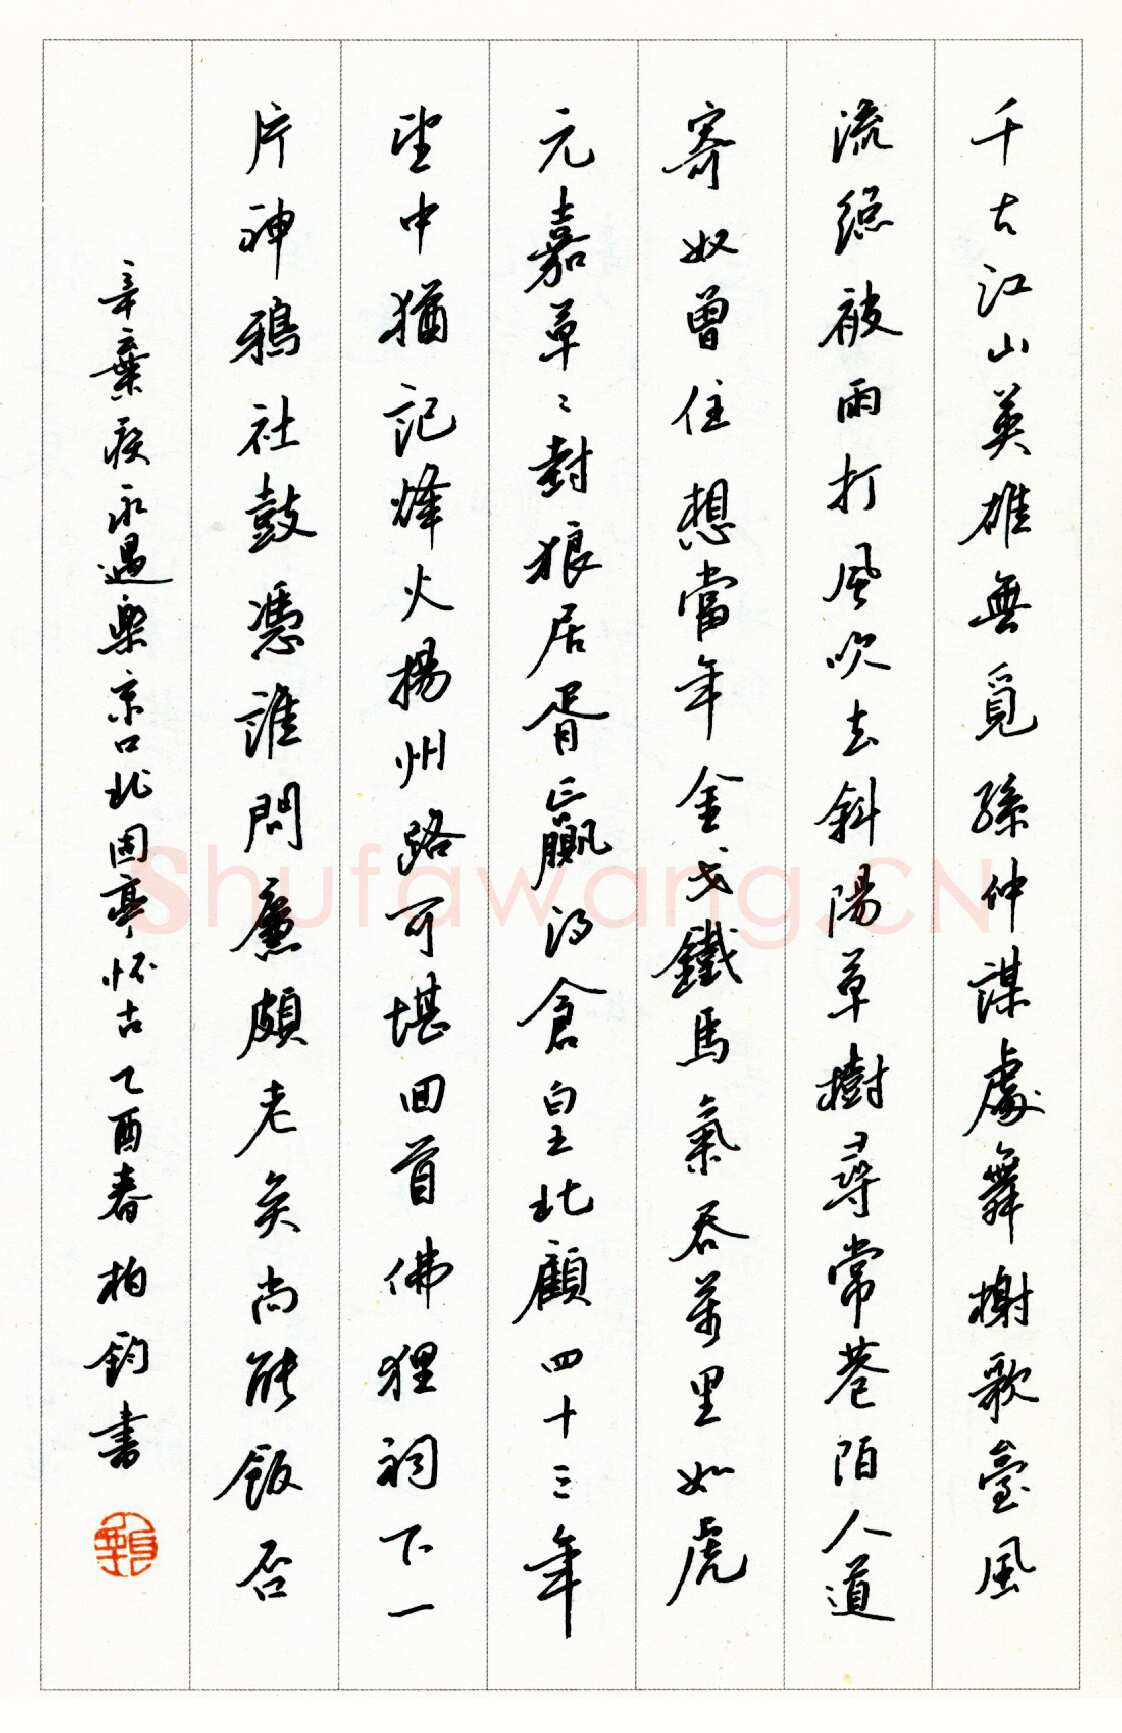 千古江山英雄無覓孫仲謀處舞榭歌臺風
流總被雨打風吹去斜陽草樹尋常巷陌人道
寄奴曾住想當年金戈鐵馬氣吞萬里如虎
元嘉草〻封狼居胥贏得倉皇北顧四十三年
望中猶記烽火揚州路可堪回首佛狸祠下一
片神鴉社鼓憑誰問廉頗老矣尚能飯否
辛棄疾永遇樂京口北固亭怀古乙酉春柏鈞書
Shufawang.CN